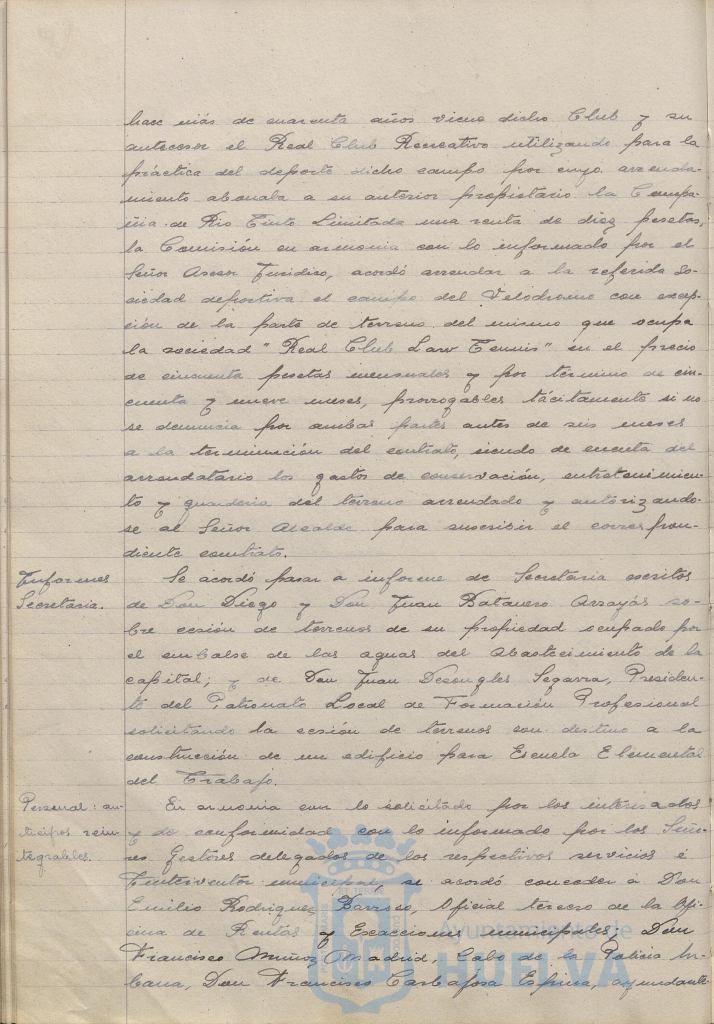 hace más de cuarenta años viene dicho Club y su
antecesor el Real Club Recreativo utilizando para la
práctica del deporte dicho campo por cuyo arrenda-
miento abonaba a su anterior propietario la Compa-
ñia de Rio Tinto Limitada una renta de diez pesetas,
la Comisión en armonia con lo informado por el
Señor Asesor Juridico, acordó arrendar a la referida So-
ciedad deportiva el campo del Velodromo con excep-
ción de la parte de terreno del mismo que ocupa
la sociedad "Real Club Law Tennis" en el precio
de cincuenta pesetas mensuales y por termino de cin-
cuenta y nueve meses, prorrogables tácitamente si no
se denuncia por ambas partes antes de seis meses
a la terminación del contrato, siendo de cuenta del
arrendatario los gastos de conservación, entretenimien-
to y guarderia del terreno arrendado y autorizando-
se al Señor Alcalde para suscribir el correspon-
diente contrato.
Informes Secretaria.
Se acordó pasar a informe de Secretaria escritos
de Don Diego y Don Juan Batanero Arrayás so-
bre cesión de terrenos de su propiedad ocupado por
el embalse de las aguas del Abastecimiento de la
capital; y de Don Juan Segarra, Presiden-
te del Patronato Local de Formación Profesional
solicitando la cesión de terrenos con destino a la
construcción de un edificio para Escuela Elemental
del Trabajo.
Personal: an-
ticipos rein-
tegrables.
En armonia con lo solicitado por los interesados
y de conformidad con lo informado por los Seño-
res Gestores delegados de los respectivos servicios é
Interventor municipal, se acordó conceder á Don
Emilio Rodriguez Barroso, Oficial tercero de la Ofi-
cina de Rentas y Exacciones municipales; Don
Francisco Muñoz Madrid, Cabo de la Policia Ur-
bana, Don Francisco Carbajosa Espina, ayudante
Ayuntamiento de
HUELVA